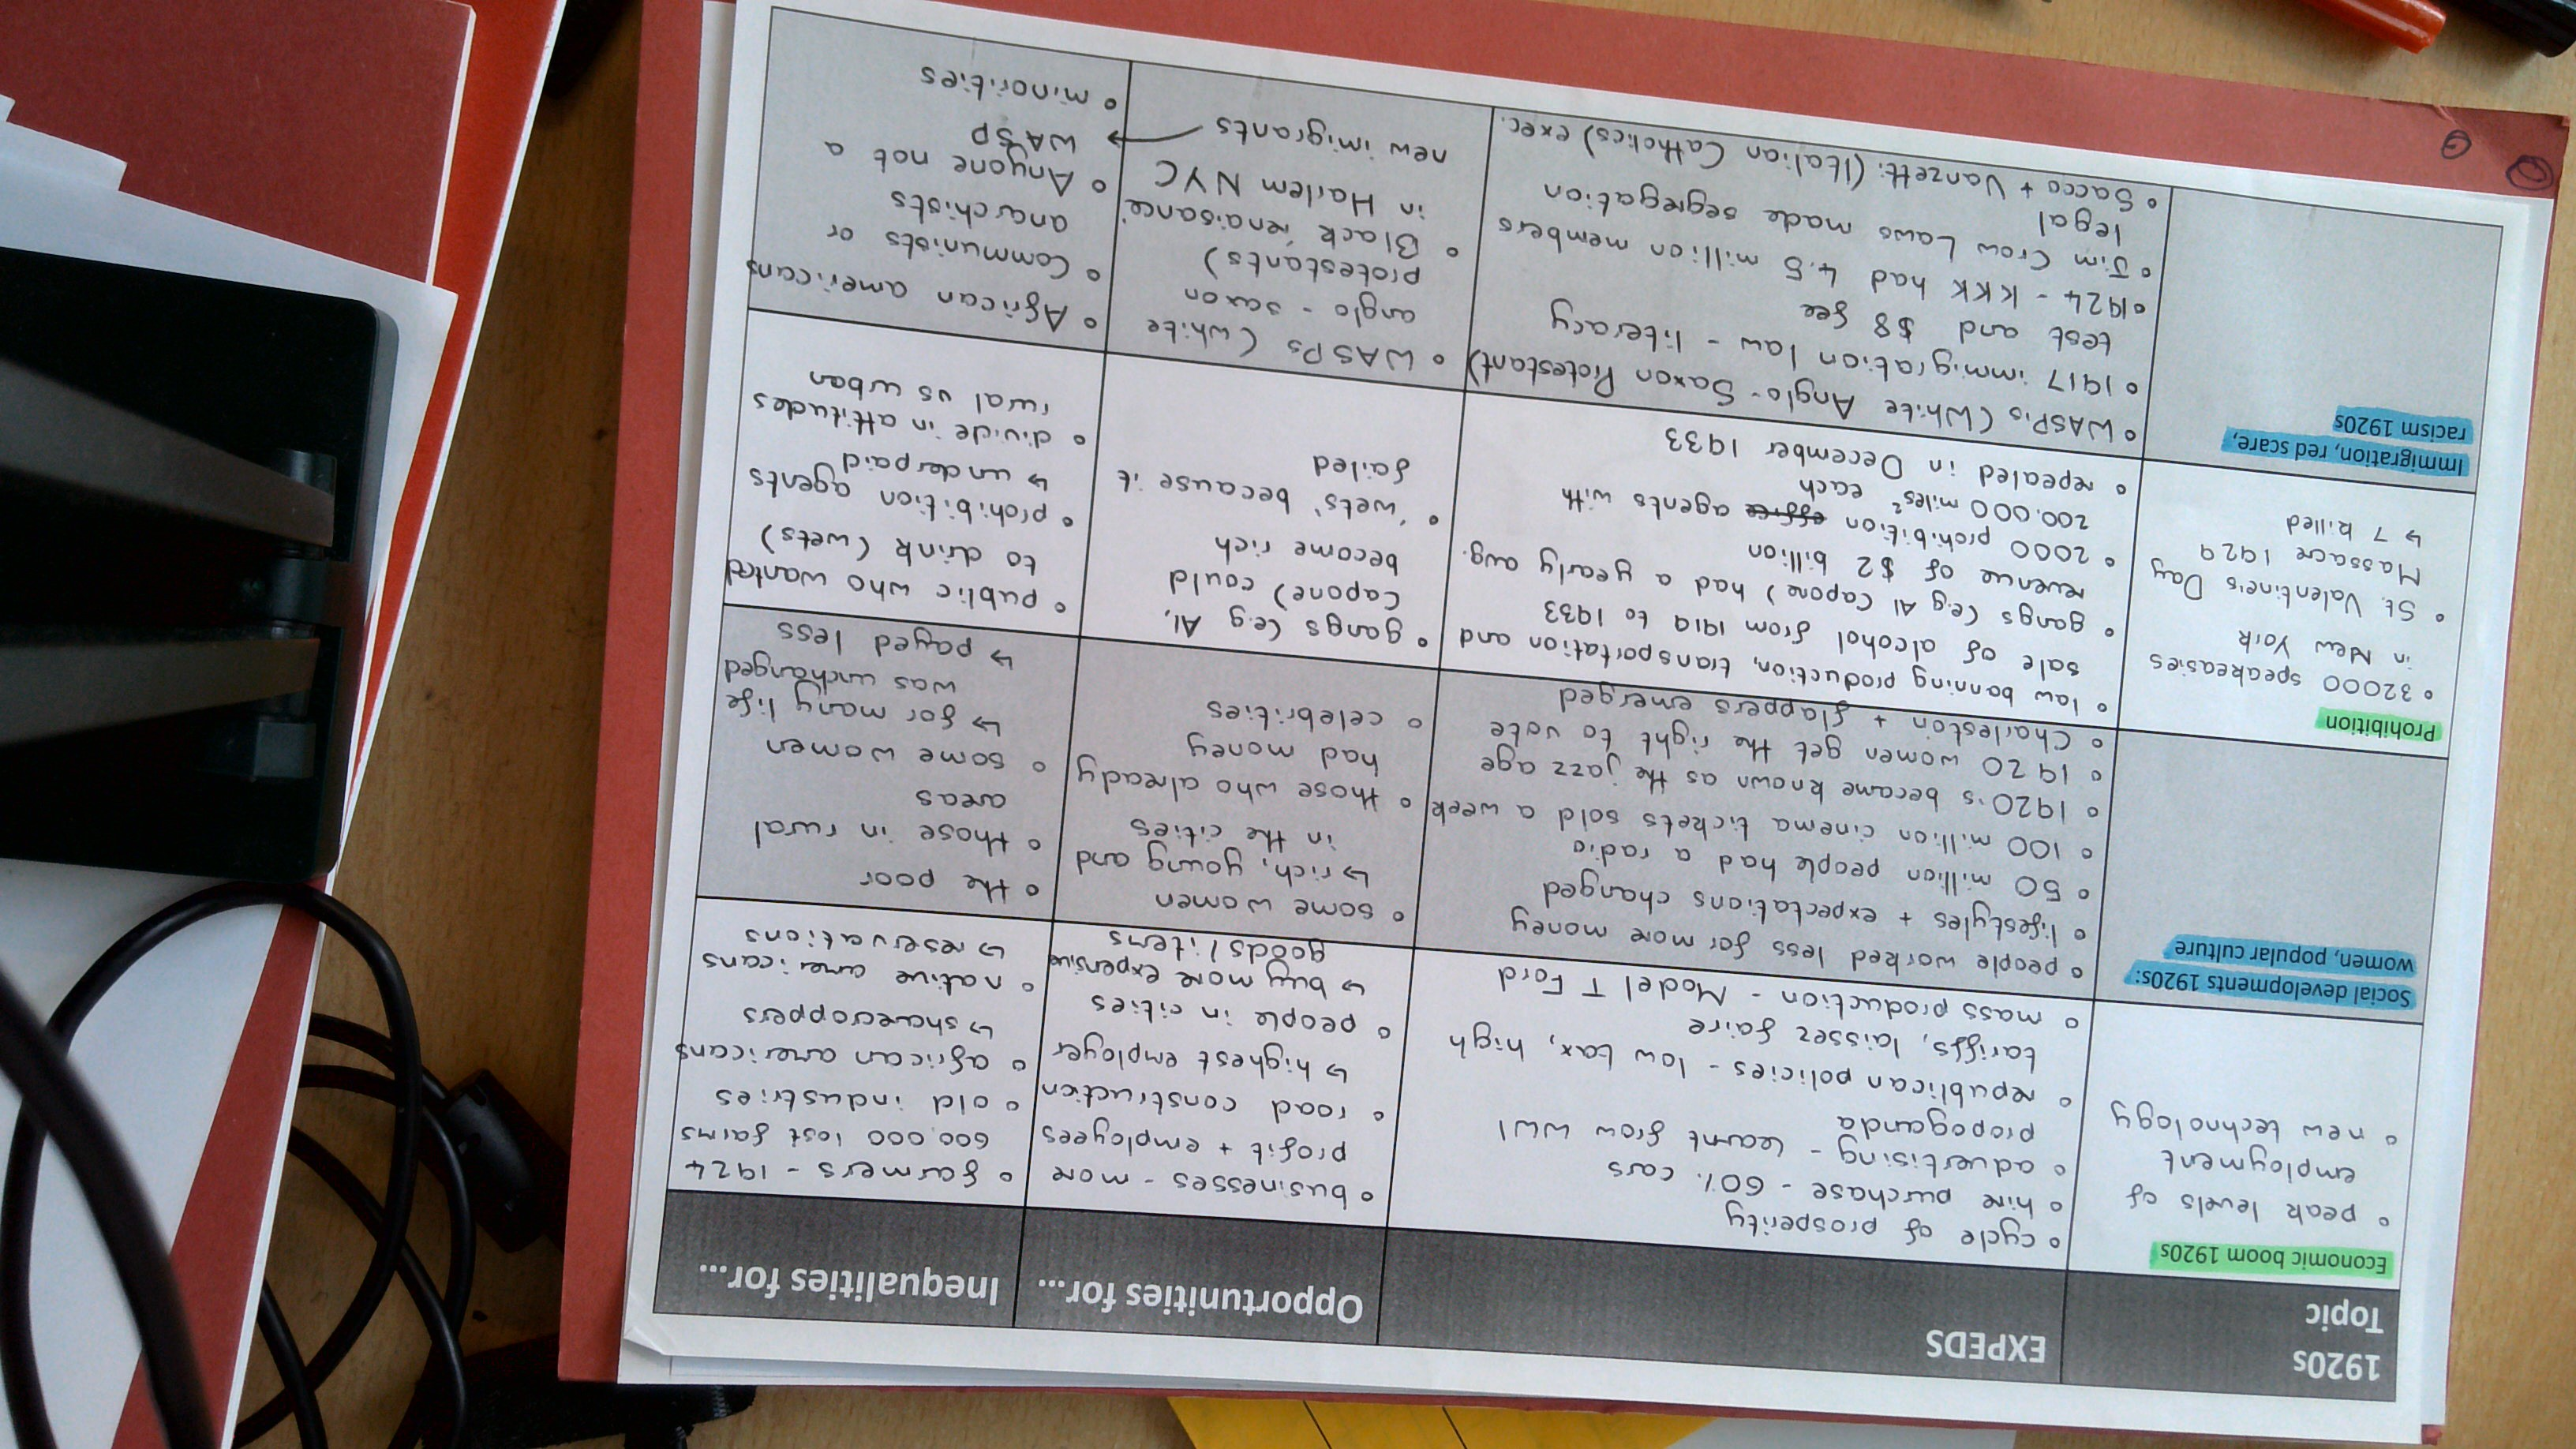 1920s
Topic
EXPEDS
Opportunities for...
Inequalities for...
Economic boom 1920s
• peak levels of
employment
• new technology
• cycle of prosperity
• hire purchase - 60% cars
• advertising - learnt grow WW1
propoganda
• republican policies - low tax, high
tariffs, laissez faire
• mass production - Model T Ford
• businesses - more
profit + employees
• road construction
↳ highest employer
• people in cities
↳ buy more expensive
goods/items
• farmers - 1924
600,000 lost farms
• old industries
• african americans
↳ sharecroppers
• native americans
↳ reservations
Social developments 1920s:
women, popular culture
• people worked less for more money
• lifestyles + expectations changed
• 50 million people had a radio
• 100 million cinema tickets sold a week
• 1920's became known as the jazz age
• 1920 women get the right to vote
• Charleston + flappers emerged
• some women
↳ rich, young and
in the cities
• those who already
had money
• celebrities
• the poor
• those in rural
areas
• some women
↳ for many life
was unchanged
↳ payed less
Prohibition
• 32000 speakeasies
in New York
• St. Valentine's Day
Massacre 1929
↳ 7 killed
• law banning production, transportation and
sale of alcohol from 1919 to 1933
• gangs (eg Al Capone) had a yearly avg.
revenue of $2 billion
• 2000 prohibition agents with
200,000 miles² each
• repealed in December 1933
• gangs (eg Al,
Capone) could
become rich
• 'wets' because it
failed
• public who wanted
to drink (wets)
• prohibition agents
↳ underpaid
• divide in attitudes
rural vs urban
Immigration, red scare,
racism 1920s
• WASP's (White Anglo-Saxon Protestant)
• 1917 immigration law - literacy
test and $8 fee
• 1924 - KKK had 4.5 million members
• Jim Crow Laws made segregation
legal
• Sacco + Vanzetti (Italian Catholics) exec.
• WASPs (white
anglo-saxon
protestants)
• Black 'renaisance'
in Harlem NYC
new imigrants →
• African americans
• Communists or
anarchists
• Anyone not a
WASP
• minorities